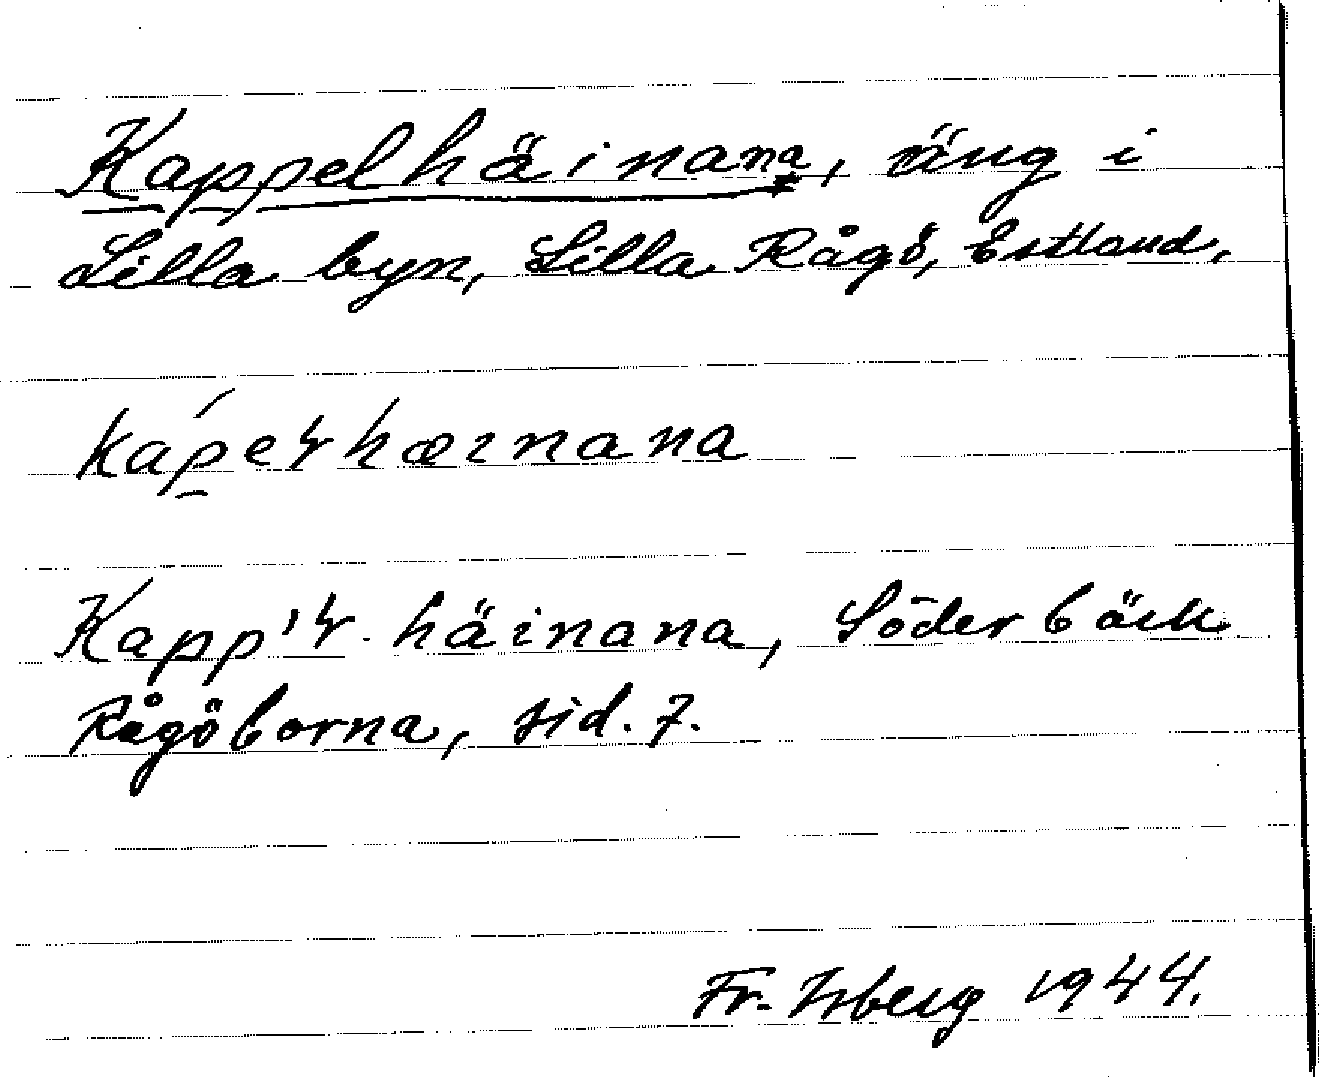 Kappelhäinana, äng i
Lilla byn, Lilla Rågö, Estland.
kápeɫhæınana
Kapp'ɫ-häinana, Söderbäck
Rågöborna, sid. 7.
Fr. Isberg 1944.